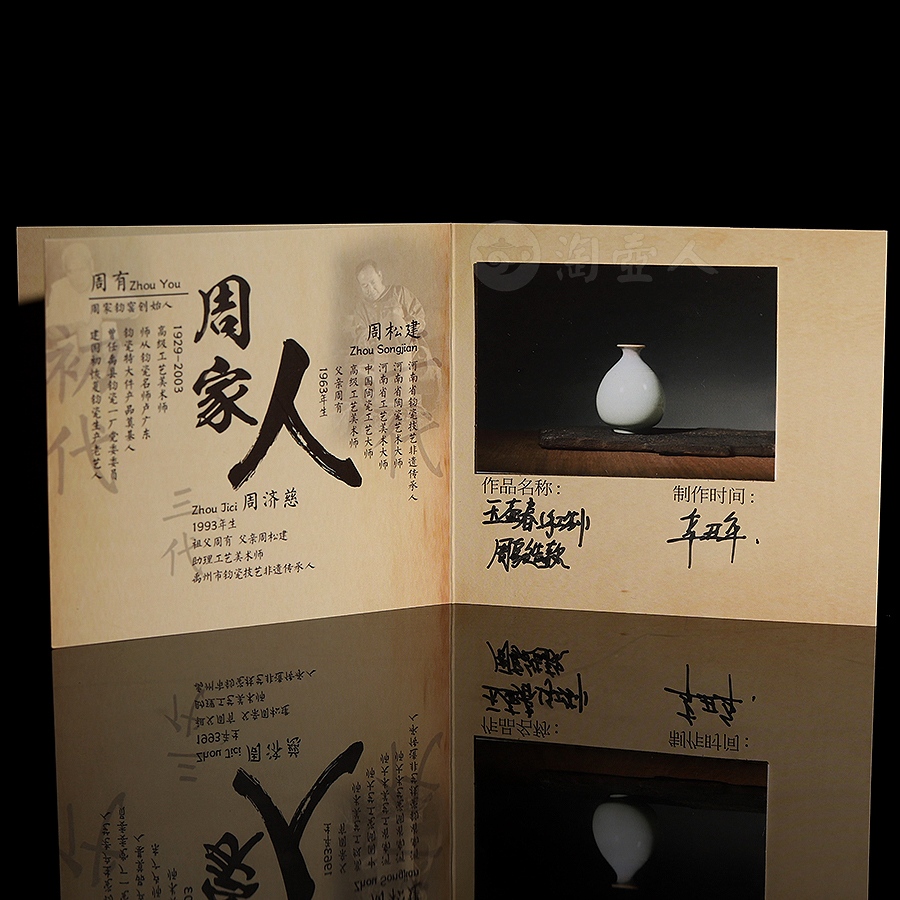 周有Zhou You
周家钧窑创始人
1929-2003
高级工艺美术师
师从钧瓷名师卢广东
钧瓷特大件产品奠基人
曾任禹县钧瓷一厂党委委员
建国初恢复钧瓷生产老艺人
初代
周家人
周松建
Zhou Songjian
河南省钧瓷技艺非遗传承人
河南省陶瓷艺术大师
河南省工艺美术大师
中国陶瓷工艺大师
高级工艺美术师
父亲周有
1963年生
三代
Zhou Jici 周济慈
1993年生
祖父周有 父亲周松建
助理工艺美术师
禹州市钧瓷技艺非遗传承人
淘壶人
作品名称:
玉壶春
制作时间:
辛丑年.